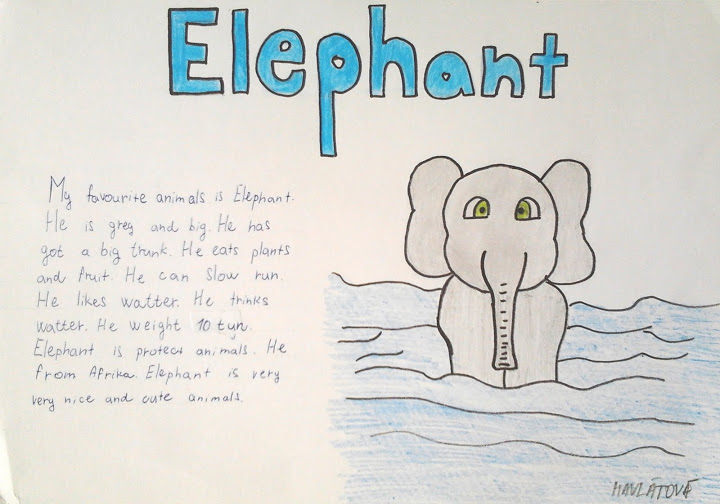 Elephant
My favourite animals is Elephant.
He is grey and big. He has
got a big trunk. He eats plants
and fruit. He can slow run.
He likes watter. He trinks
watter. He weight 10 tyn.
Elephant is protect animals. He
from Afrika. Elephant is very
very nice and cute animals.
HAVLÁTOVÁ